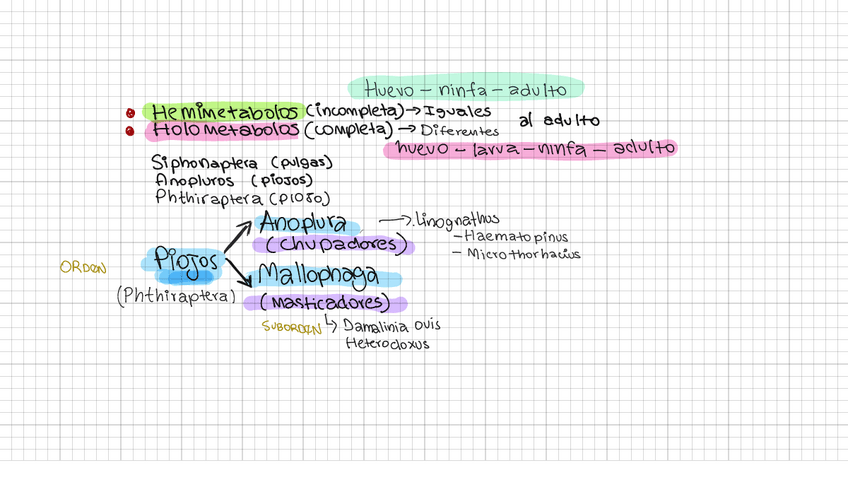 Huevo - ninfa - adulto
• Hemimetabolos (incompleta) → Iguales
al adulto
• Holo metabolos (completa) → Diferentes
huevo - larva - ninfa - adulto
Siphonaptera (pulgas)
Anopluros (piojos)
Phthiraptera (piojo)
Anoplura → Linognathus
(chupadores) - Haematopinus
- Microthoracius
ORDEN Piojos
(Phthiraptera)
Mallophaga
(masticadores)
SUBORDEN ↳ Damalinia ovis
Heterodoxus